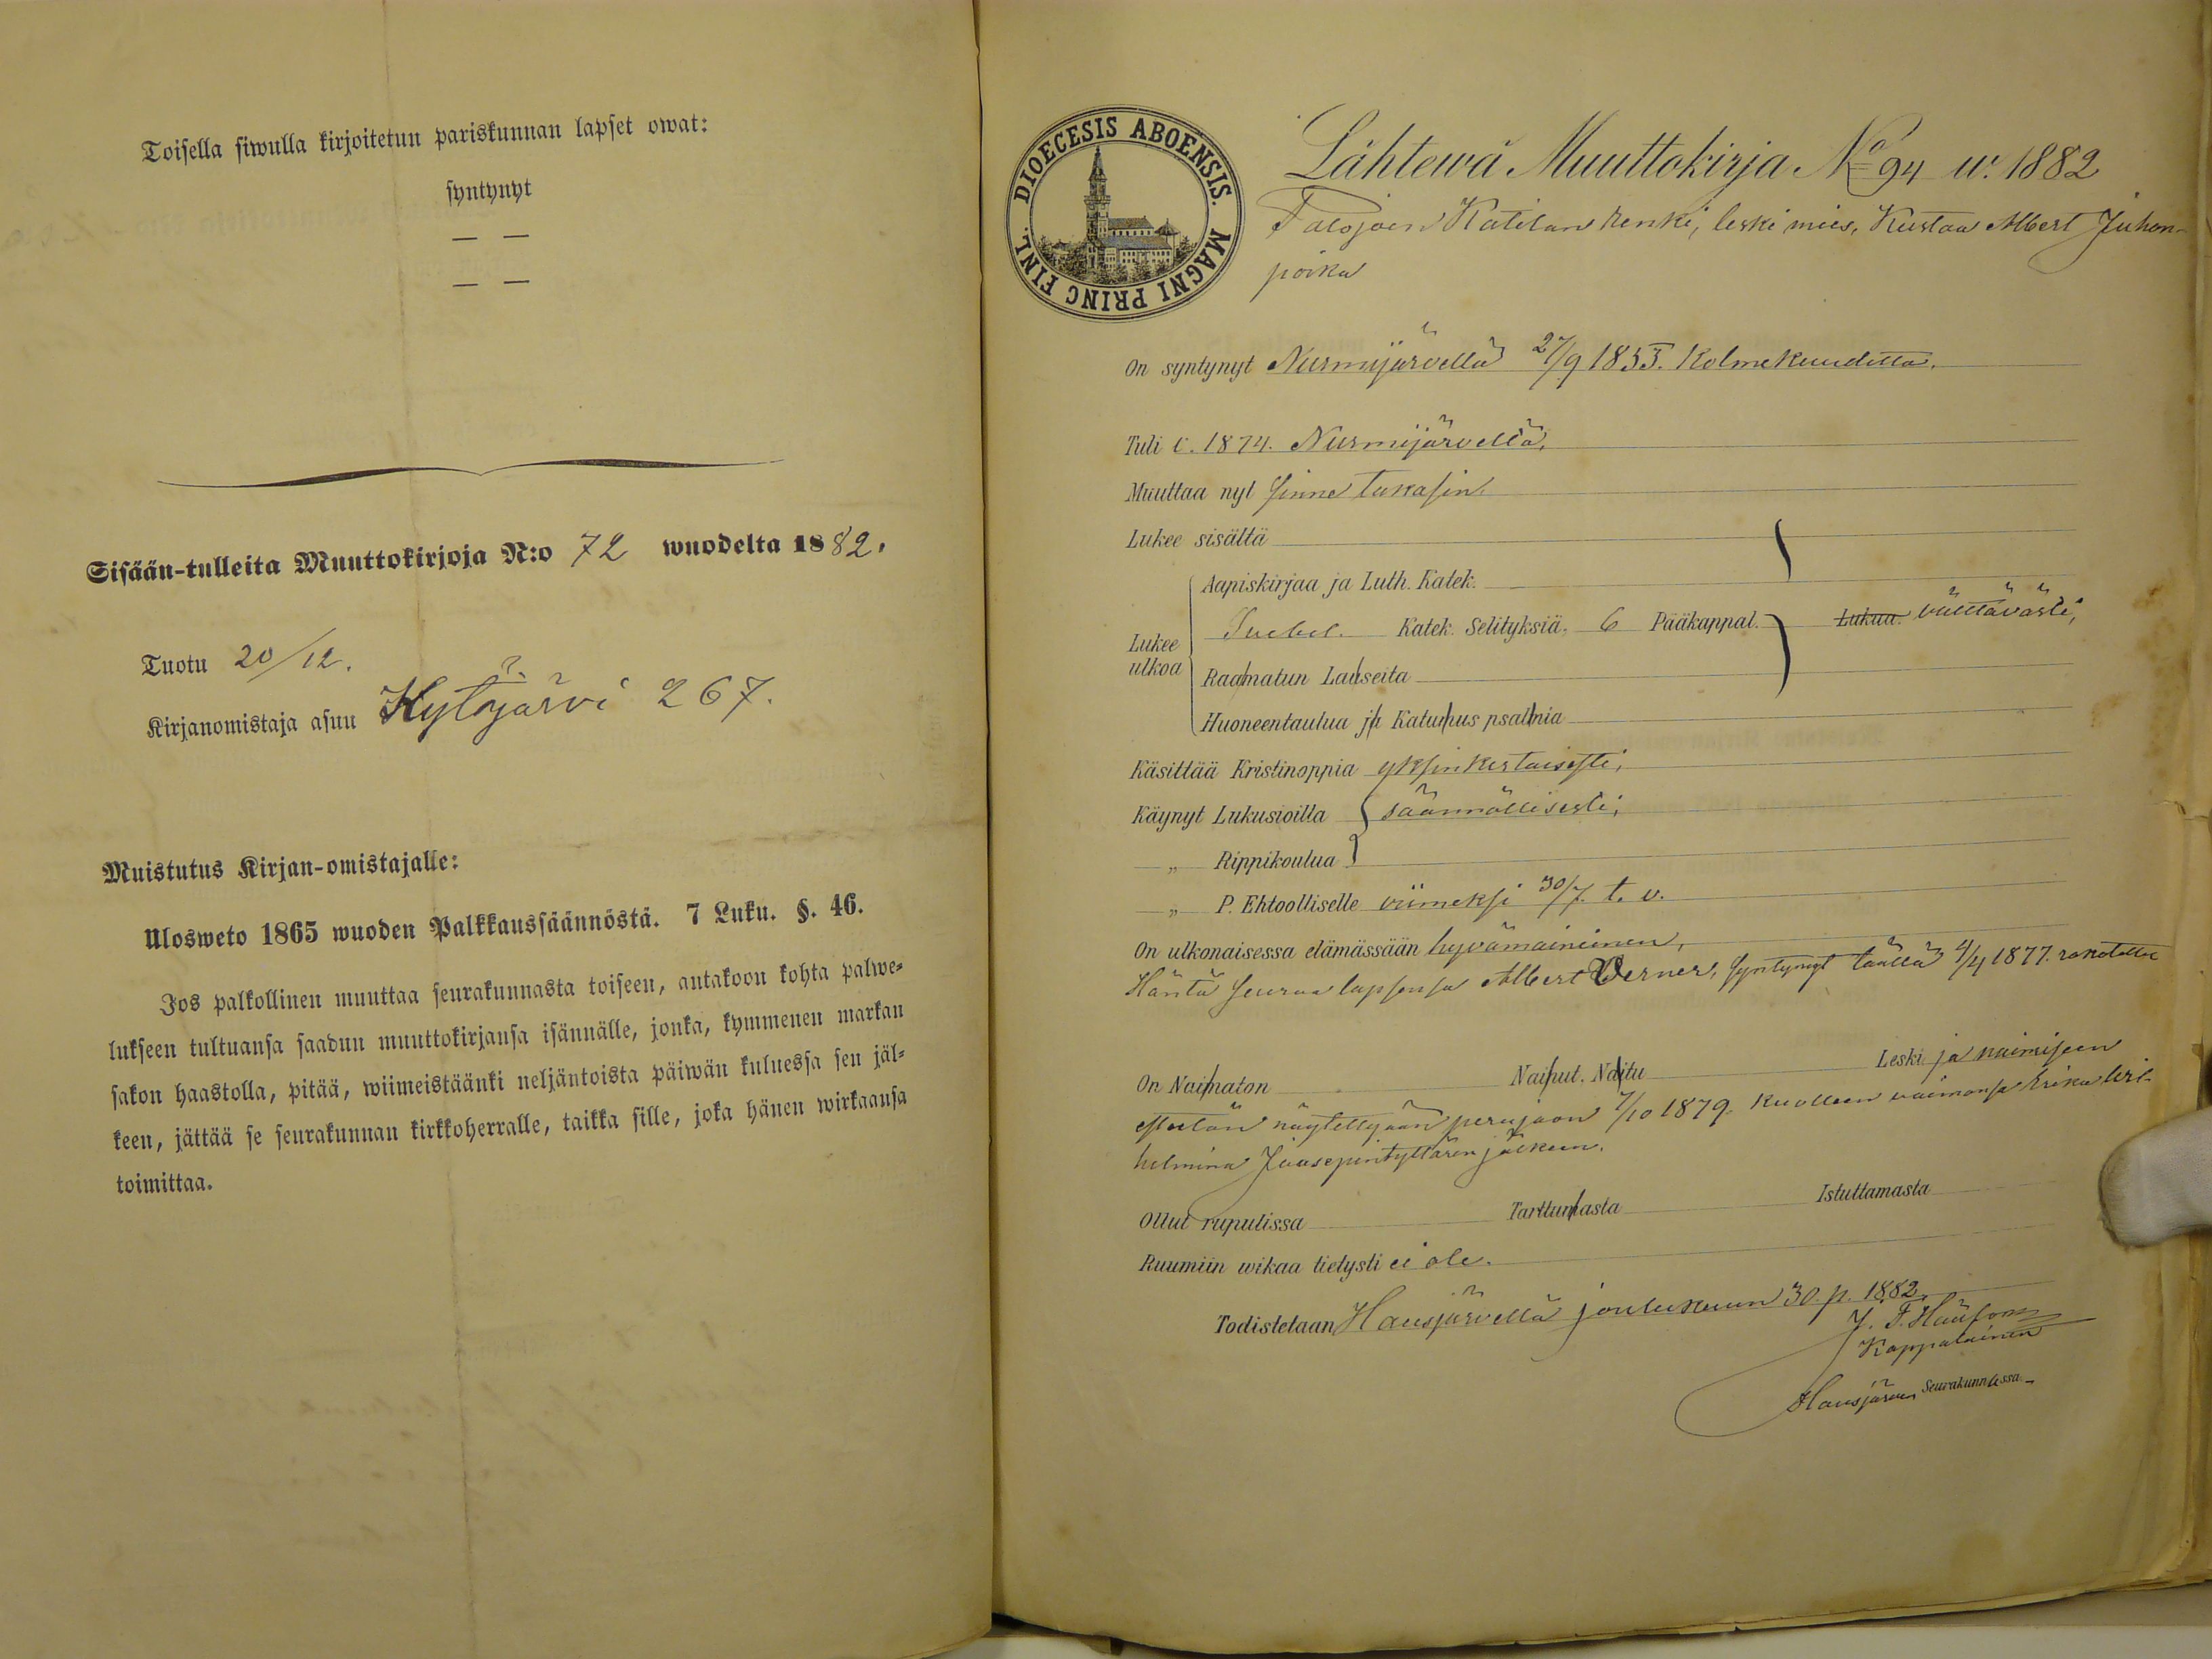 Toisella siwulla kirjoitetun pariskunnan lapset owat:
syntynyt
— —
— —
Sisään-tulleita Muuttokirjoja N:o 72 wuodelta 1882.
Tuotu 20/12.
Kirjanomistaja asuu Kytäjärvi 267.
Muistutus Kirjan-omistajalle:
Ulosweto 1865 wuoden Palkkaussäännöstä. 7 Luku. §. 46.
Jos palkollinen muuttaa seurakunnasta toiseen, antakoon kohta palwe-
lukseen tultuansa saadun muuttokirjansa isännälle, jonka, kymmenen markan
sakon haastolla, pitää, wiimeistäänki neljäntoista päiwän kuluessa sen jäl-
keen, jättää se seurakunnan kirkkoherralle, taikka sille, joka hänen wirkaansa
toimittaa.
DIOECESIS ABOENSIS. MAGNI PRINC FINL.
Lähtewä Muuttokirja No 94 w. 1882
Palojoen Katilan renki, leski mies, Kustaa Albert Juhon-
poika
On syntynyt Nurmijärvellä 27/9 1853. Kolmekuuditta.
Tuli v. 1874. Nurmijärveltä,
Muuttaa nyt sinne takasin.
Lukee sisältä
Aapiskirjaa ja Luth. Katek.
Lukee ulkoa Katek. Selityksiä. 6 Pääkappal. Lukua. välttävästi,
Raamatun Lauseita
Huoneentaulua ja Katumus psalmia
Käsittää Kristinoppia yksinkertaisesti,
Käynyt Lukusioilla säännöllisesti,
„ Rippikoulua
„ P. Ehtoolliselle viimeksi 30/7. t. v.
On ulkonaisessa elämässään hyvämaineinen,
Häntä seuraa lapsensa Albert Verner, syntynyt täällä 4/4 1877. rokotettu
On Naimaton Naihut. Naitu Leski ja naimiseen
esteetön näytettyään perujaon 7/10 1879. kuolleen vaimonsa Erika Wil-
helmina Juusepintyttären jälkeen.
Ollut rupulissa Tarttumasta Istuttamasta
Ruumiin wikaa tietysti ei ole.
Todistetaan Hausjärvellä joulukuun 30. p. 1882.
Kappalainen
Hausjärven Seurakunnassa.